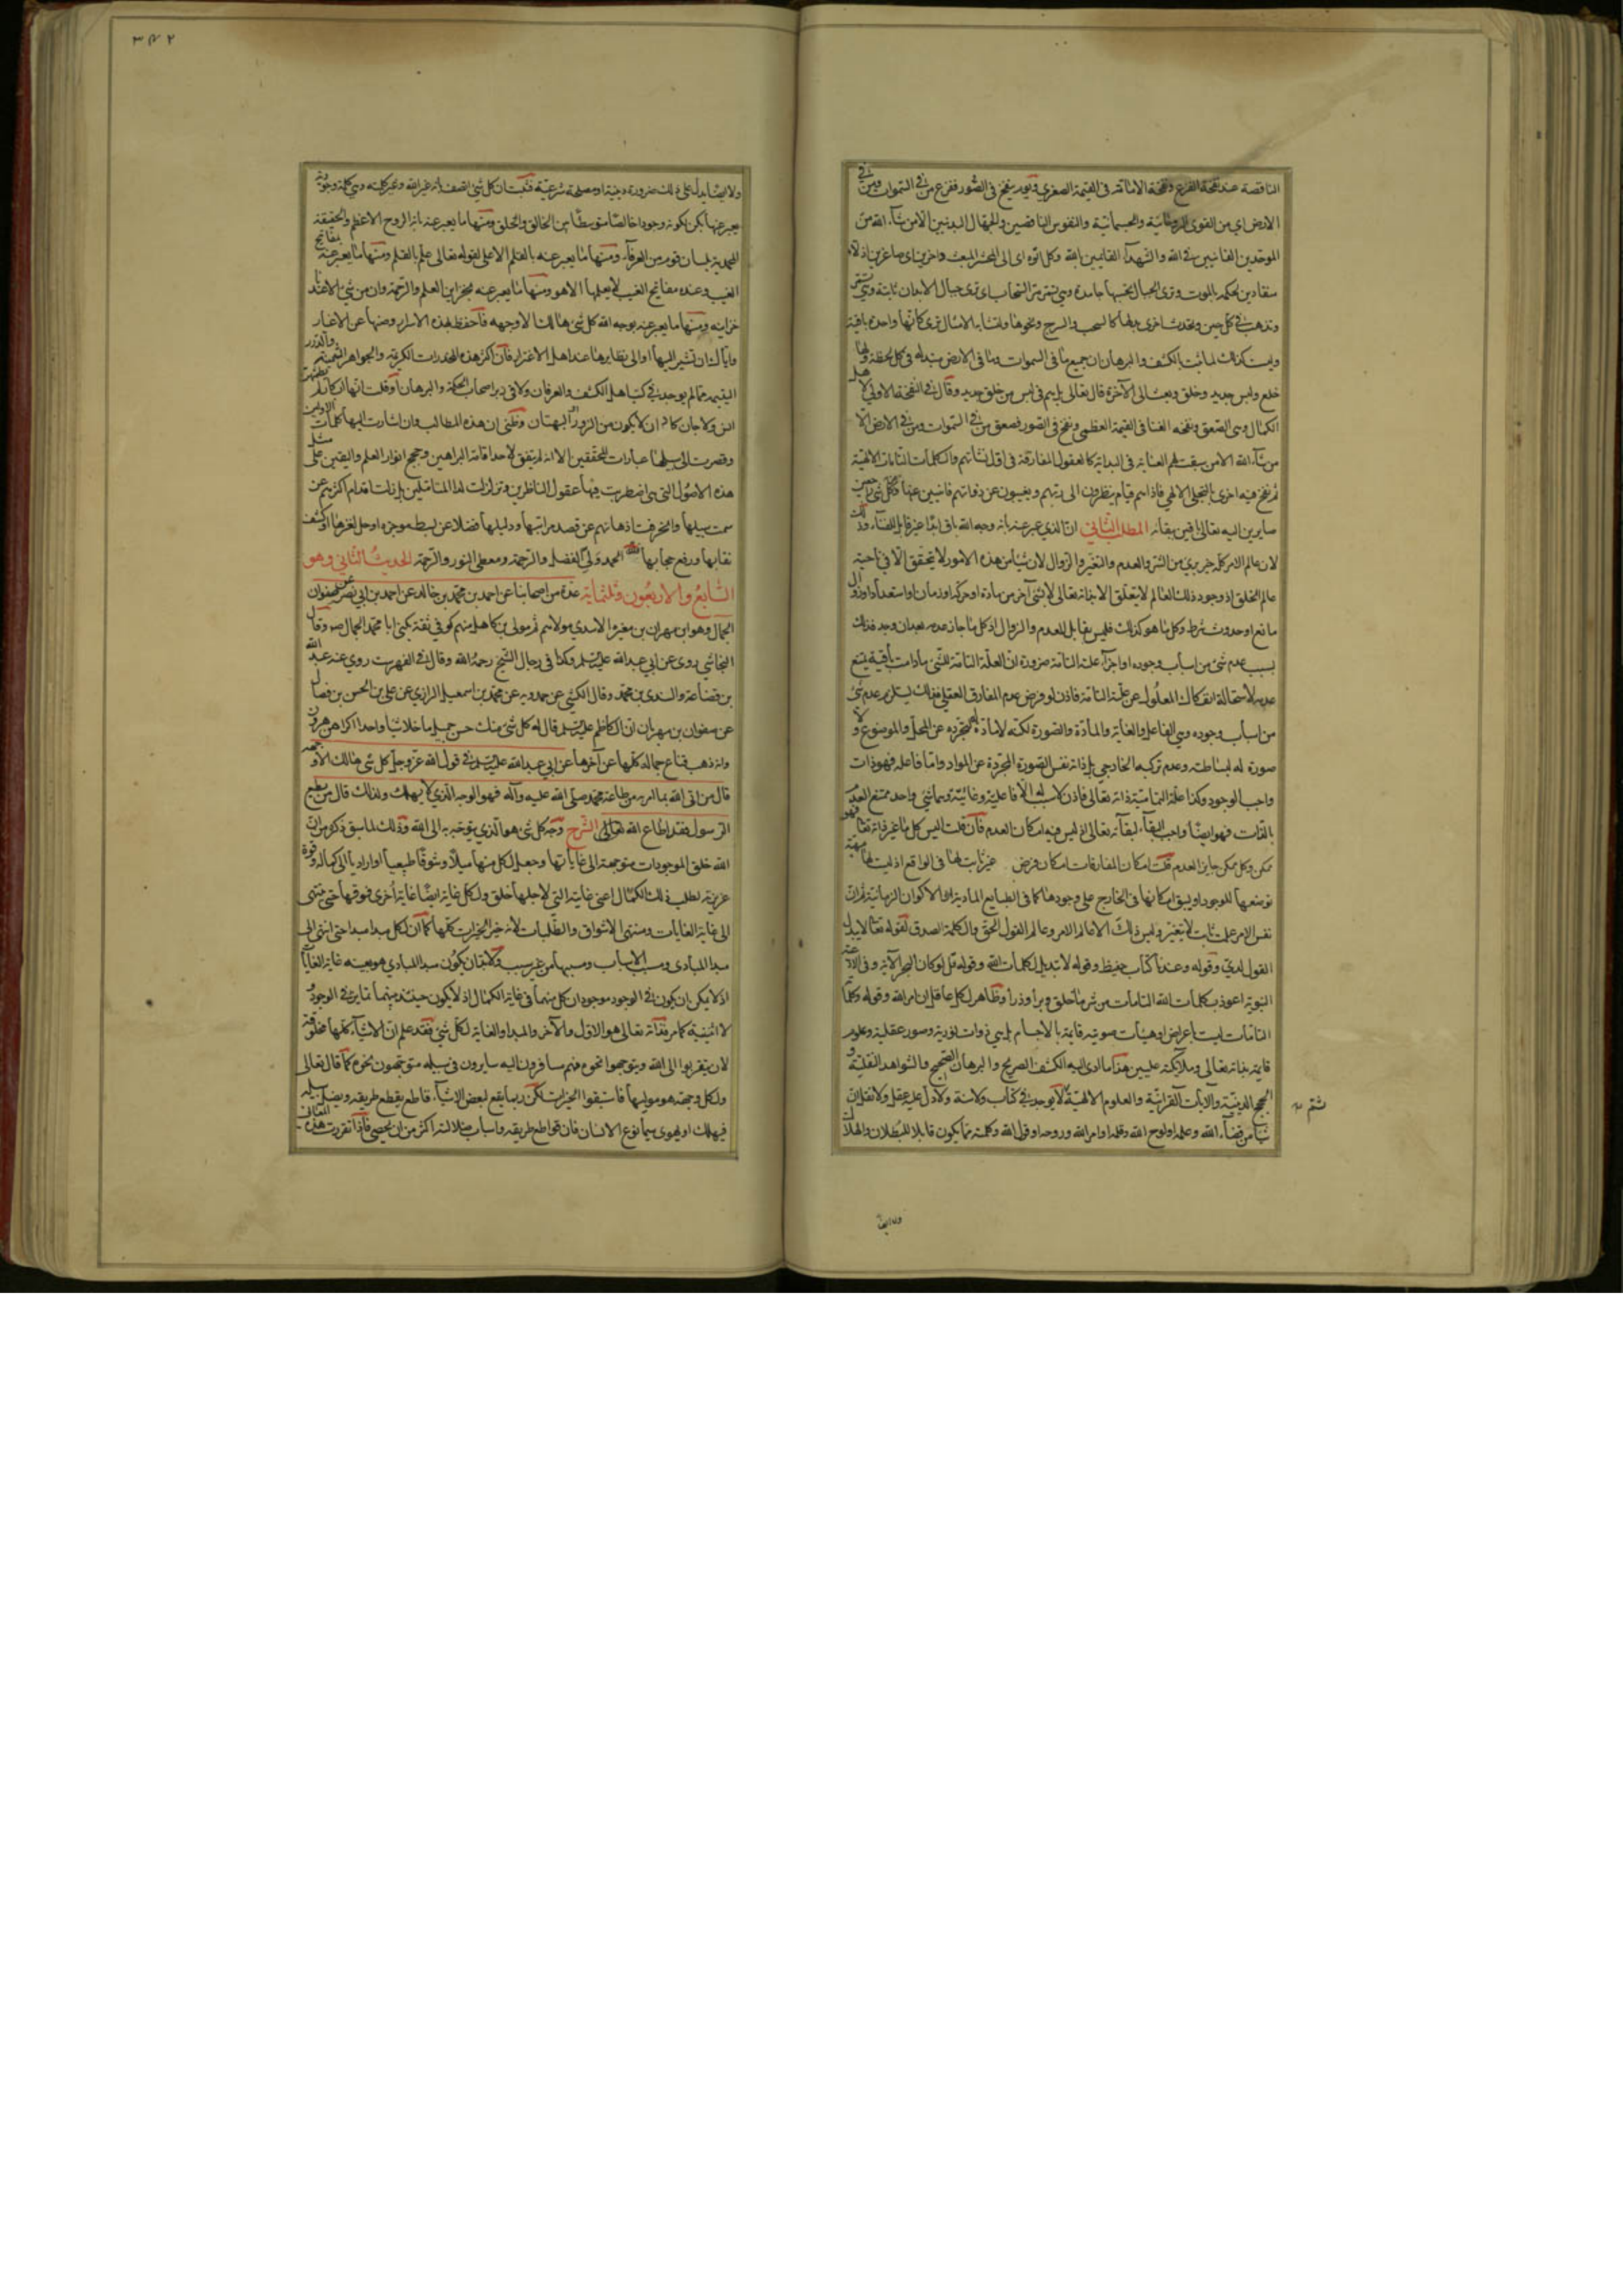 الناقصة عند نفخة الفزع ونفخة الاماتة فى القيمة الصغرى ويوم ينفخ فى الصور ففزع من فى السموات ومن فى
الارض اي من القوى الروحانية والجسمانية والنفوس الناقصين والجهال البدنيين الا من شاء الله من
الموحدين الفانين فى الله والشهدآء القايمين بالله وكل اتوه اى الى المحشر المبعث داخرين اى صاغرين اذلاء
منقادين لحكمه بالموت وترى الجبال تحسبها جامدة وهى تمر مر السحاب اى ترى جبال الابدان ثابتة وهى تمر
وتذهب فى كل حين وتحدث اخرى مثلها كالسحب والسرج ونحوها ولتشابه الامثال ترى كانها واحدة باقية
وليست كذلك لما ثبت بالكشف والبرهان ان جميع ما فى السموات وما فى الارض متبدله فى كل لحظة ولها
خلع ولبس جديد وخلق وبعث الى الآخرة قال تعالى بل هم فى لبس من خلق جديد وقال فى النفخة الاولى لاهل
الكمال وهى الصعق ونفخه الفنا فى القيمة العظمى ونفخ فى الصور فصعق من فى السموات ومن فى الارض الا
من شاء الله الا من سبقت لهم العناية فى البداية كالعقول المفارقة فى اول نشاتهم والكلمات التامات الالهية
ثم نفخ فيه اخرى بالتجلى الالهي فاذا هم قيام ينظرون الى ربهم ويغيبون عن ذواتهم فانين عنها وكل شى
صايرين اليه تعالى باقين ببقائه المطلب الثانى ان الذي عبر عنه بانه وجه الله باق ابدا غير قابل للفناء وذلك
لان عالم الامر كله خير بري من الشر والعدم والتغير والزوال لان شيئا من هذه الامور لا يتحقق الا فى ناحية
عالم الخلق اذ وجود ذلك العالم لا يتعلق الا بذاته تعالى لا بشئ آخر من مادة او حركة او زمان او استعداد او زوال
مانع او حدوث شرط وكل ما هو كذلك فليس بقابل للعدم والزوال اذ كل ما جاز عدمه بعد ان وجد فذلك
بسبب عدم شئ من اسباب وجوده او اجزآء علته التامة ضرورة ان العلة التامة للشئ ما دامت باقية يمتنع
عدمه لاستحالة انفكاك المعلول عن علته التامة فاذن لو فرض عدم المفارق العقلي فذلك يستلزم عدم شئ
من اسباب وجوده وهى الفاعل والغاية والمادة والصورة لكنه لا مادة له لتجرده عن المحل والموضوع ولا
صورة له لبساطته وعدم تركبه الخارجي بل ذاته نفس الصورة المجردة عن المواد واما فاعله فهو ذات
واجب الوجود وكذا علته التمامية ذاته تعالى فاذن لا سبب له الا فاعلية وغائية وهما شئ واحد ممتنع العدم
بالذات فهو ايضا واجب البقاء ببقائه تعالى اذ ليس فيه امكان العدم فان قلت اليس كل ما غير ذاته تعالى فهو
ممكن وكل ممكن جايز العدم قلت امكان المفارقات امكان فرض غير ثابت لها فى الواقع اذ ليست لها مهية
توسعها للوجود او يسبق امكانها فى الخارج على وجودها كما فى الطبايع المادية او الاكوان الزمانية
نفس الامر علمت ثابت لا يتغير وليس ذلك الا عالم الامر وعالم القول الحق والكلمة الصدق لقوله تعالى لا يبدل
القول لدي وقوله وعندنا كتاب حفيظ وقوله لا تبديل لكلمات الله وقوله قل لو كان البحر الآية وفى الادعية
النبوية اعوذ بكلمات الله التامات من شر ما خلق وبرا وذرا وظاهر لكل عاقل ان امر الله وقوله وكلماته
التامات ليست باعراض او هيئات صوتية قايمة بالاجسام بل هى ذوات نورية وصور عقلية وعلوم
قايمة بذاته تعالى وملائكة عليين هذا ما ادى اليه الكشف الصريح والبرهان الصحيح والشواهد النقلية و
الحجج الدينية والآيات القرآنية والعلوم الالهية لا يوجد فى كتاب ولا سنة ولا دل عليه عقل ولا نقل ان
شيئا من قضاء الله وعلمه او لوح الله وقلمه او امر الله وروحه او قول الله وكلمته مما يكون قابلا للبطلان والهلاك
ولا ايضا
٣٤٢
ولا ايضا يدل على ذلك ضرورة دينية او مصلحة شرعية فثبت ان كل شئ
يعبر عنها بكن لكونه وجودا خالصا متوسطا بين الخالق والخلق ومنها ما يعبر عنه بانه الروح الاعظم والحقيقة
المحمدية بلسان قوم من العرفآء ومنها ما يعبر عنه بالقلم الاعلى لقوله تعالى علم بالقلم ومنها ما يعبر عنه بمفاتح
الغيب وعنده مفاتح الغيب لا يعلمها الا هو ومنها ما يعبر عنه بخزاين العلم والرحمة وان من شئ الا عندنا
خزاينه ومنها ما يعبر عنه بوجه الله كل شئ هالك الا وجهه فاحفظ بهذه الاسرار وصنها عن الاغيار
واياك ان تشير اليها او الى نظايرها عند اهل الاغترار فان اكثر هذه المخدرات الكريمة والجواهر الثمينة والدرر
اليتيمة مما لم يوجد فى كتب اهل الكشف والعرفان ولا فى زبر اصحاب الحكمة والبرهان او قلت انها ابكار لم يطمثهن
انس ولا جان كاد ان لا يكون من الزور والبهتان وظنى ان هذه المطالب وان اشارت اليها كلمات الاولين
وقصرت الى سبيلها عبارات المحققين الا انه لم يتفق لاحد اقامة البراهين وحجج انوار العلم واليقين على مثل
هذه الاصول التى هى اضطربت فيها عقول الناظرين وتزلزلت لها المتاملين بل زلت اقدام اكثرهم عن
سمت سبيلها وانحرفت اذهانهم عن قصد مراتبها ودليلها فضلا عن بسط موجزه او حل لغزها او كشف
نقابها ورفع حجابها فلله الحمد ولي الفضل والرحمة ومعطى النور والرحمة الحديث الثاني وهو
السابع والاربعون وثلثماية عدة من اصحابنا عن احمد بن محمد بن خالد عن احمد بن ابي نصر عن صفوان
الجمال وهو ابن مهران بن مغيرة الاسدى مولاهم ثم مولى بنى كاهل منهم كوفى ثقة يكنى ابا محمد الجمال صه وقال
النجاشي روى عن ابي عبدالله عليه السلم وكذا فى رجال الشيخ رحمه الله وقال فى الفهرست روى عنه عبد الله
بن قضاعة والسندى بن محمد وقال الكشي عن حمدويه عن محمد بن اسمعيل الرازي عن على بن الحسن بن فضال
عن صفوان بن مهران ان الكاظم عليه السلم قال له كل شئ منك حسن جميل ما خلا شيئا واحدا اكراه من هرون
وانه ذهب فباع جماله كلها عن آخرها عن ابي عبدالله عليه السلم فى قول الله عز وجل كل شئ هالك الا وجهه
قال من اتى الله بما امر به من طاعة محمد صلى الله عليه وآله فهو الوجه الذي لا يهلك وكذلك قال من يطع
الرسول فقد اطاع الله تعالى الشرح وجه كل شئ هو الذي يتوجه به الى الله وذلك لما سبق ذكره من ان
الله خلق الموجودات متوجهة الى غاياتها وجعل لكل منها ميلا وشوقا طبيعيا او اراديا الى كماله وقوة
غريزية لطلب ذلك الكمال اعنى غايته التى لاجلها خلق ولكل غاية ايضا غاية اخرى فوقها حتى تنتهى
الى غاية الغايات ومنتهى الاشواق والطلبات لانه خير الخيرات كلها كما ان لكل مبدا مبدا حتى انتهى الى
مبدا المبادى ومسبب الاسباب ومسببها من غير سبب ولا بد ان يكون مبدا المبادي هو بعينه غاية الغايات
اذ لا يمكن ان يكون فى الوجود موجودان كل منهما فى غاية الكمال اذ لا يكون حينئذ بينهما تمايز فى الوجود و
لا اثنينية كما مر فذاته تعالى هو الاول والآخر والمبدا والغاية لكل شئ فقد علم ان الاشياء كلها مخلوقة
لان يتقربوا الى الله ويتوجهوا نحوه فهم مسافرون اليه سايرون فى سبيله متوجهون نحوه كما قال تعالى
ولكل وجهة هو موليها فاستبقوا الخيرات لكن ربما يقع لبعض الاشياء قاطع يقطع طريقه ويضل سبيله
فيهلك او يهوى سيما نوع الانسان فان قواطع طريقه واسباب ضلالته اكثر من ان يحصى فاذا تقررت هذه